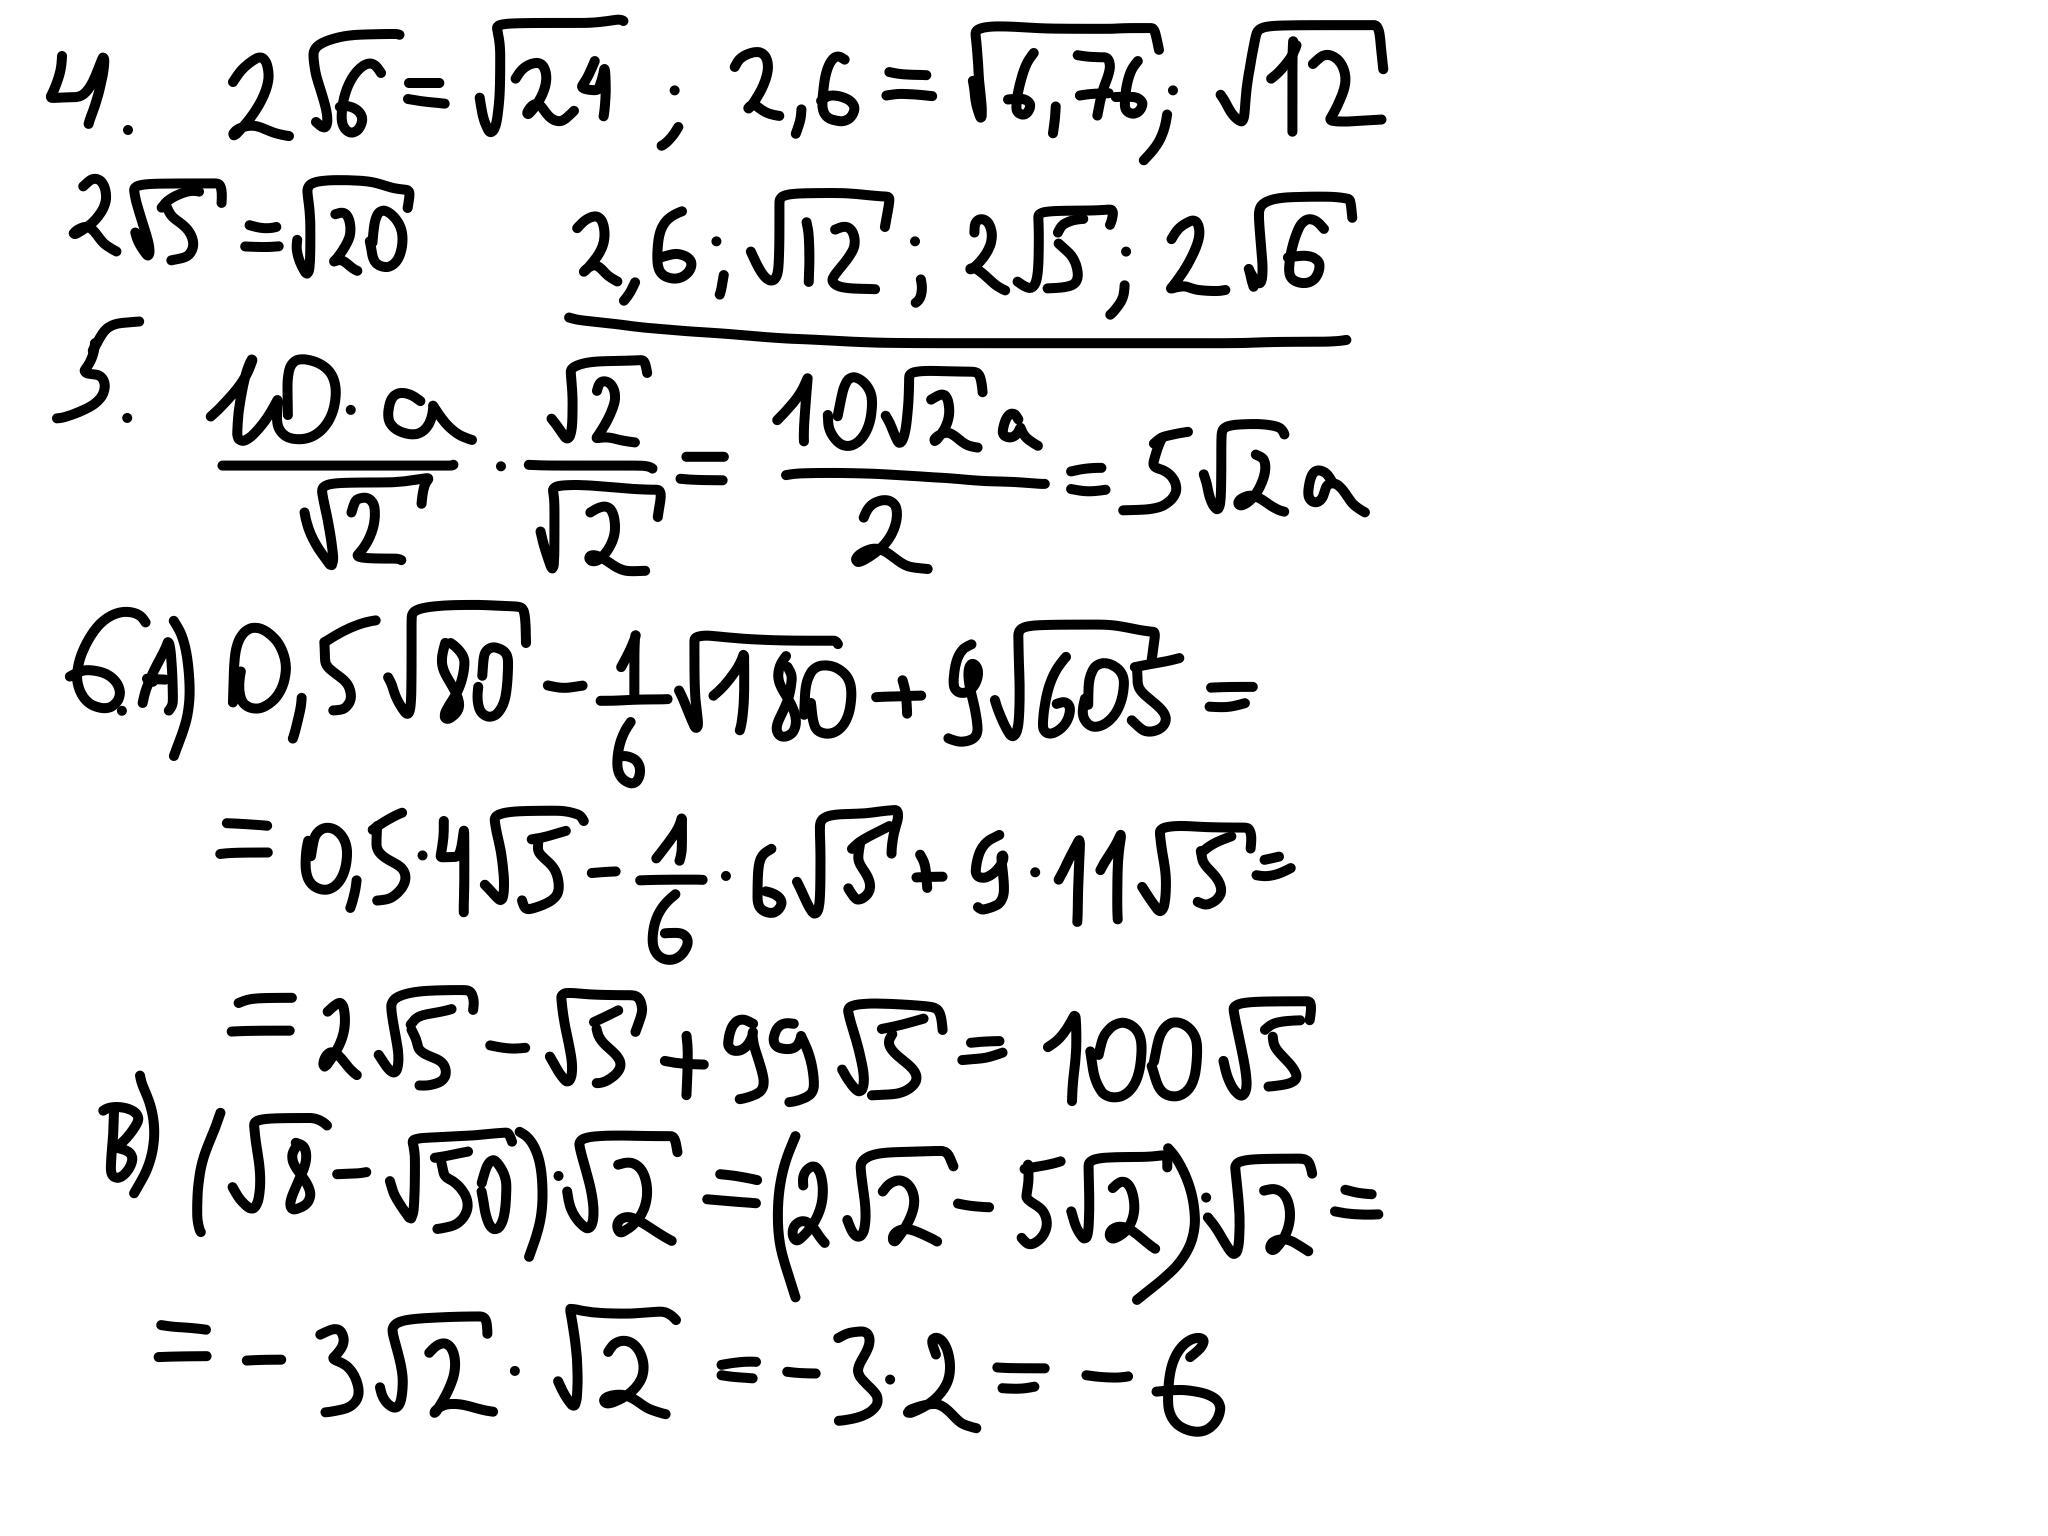 4. 2√6 = √24 ; 2,6 = √6,76 ; √12
2√5 = √20 2,6 ; √12 ; 2√5 ; 2√6
5. 10·a/√2 · √2/√2 = 10√2a/2 = 5√2a
6.A) 0,5√80 - 1/6√180 + 9√605 =
= 0,5·4√5 - 1/6·6√5 + 9·11√5 =
= 2√5 - √5 + 99√5 = 100√5
B) (√8 - √50)·√2 = (2√2 - 5√2)·√2 =
= -3√2·√2 = -3·2 = -6